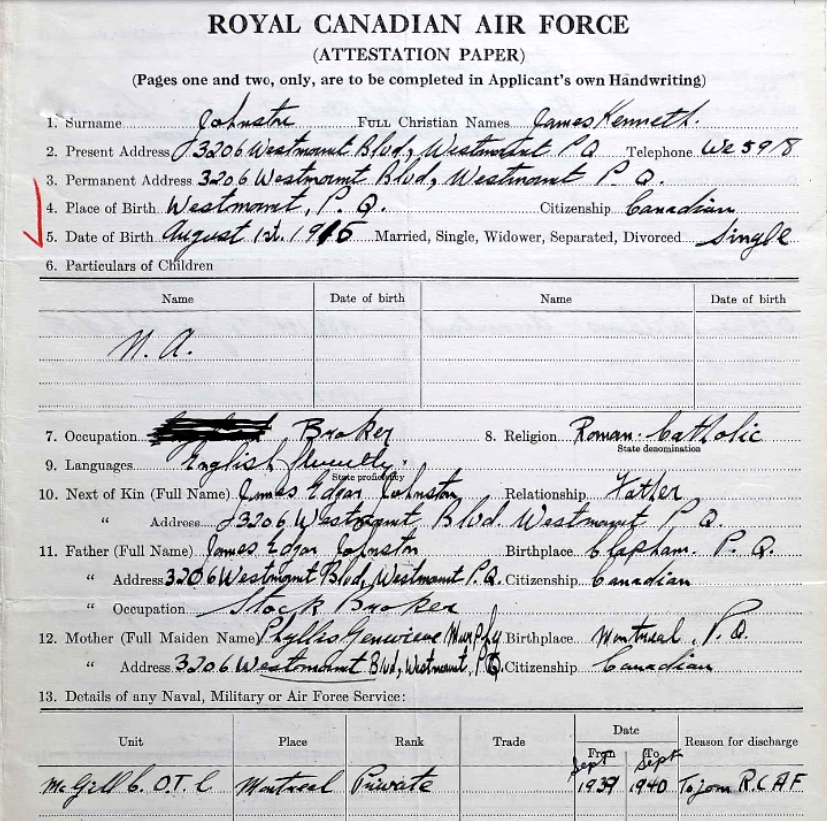 ROYAL CANADIAN AIR FORCE
(ATTESTATION PAPER)
(Pages one and two, only, are to be completed in Applicant's own Handwriting)
1. Surname Johnston FULL Christian Names James Kenneth.
2. Present Address 3206 Westmount Blvd, Westmount P Q Telephone We 5978
3. Permanent Address 3206 Westmount Blvd, Westmount P. Q.
4. Place of Birth Westmount, P. Q. Citizenship Canadian
5. Date of Birth August 1st. 1916 Married, Single, Widower, Separated, Divorced Single
6. Particulars of Children
Name Date of birth Name Date of birth
N. A.
7. Occupation Broker 8. Religion Roman Catholic
State denomination
9. Languages English fluently.
State proficiency
10. Next of Kin (Full Name) James Edgar Johnston Relationship Father
" Address 3206 Westmount Blvd. Westmount P Q.
11. Father (Full Name) James Edgar Johnston Birthplace Clapham. P. Q.
" Address 3206 Westmount Blvd, Westmount P.Q. Citizenship Canadian
" Occupation Stock Broker
12. Mother (Full Maiden Name) Phyllis Genevieve Murphy Birthplace Montreal. P. Q.
" Address 3206 Westmount Blvd, Westmount, P.Q. Citizenship Canadian
13. Details of any Naval, Military or Air Force Service:
Date
Unit Place Rank Trade From To Reason for discharge
Sept Sept
McGill C. O. T. C Montreal Private 1939 1940 To join R.C.A.F